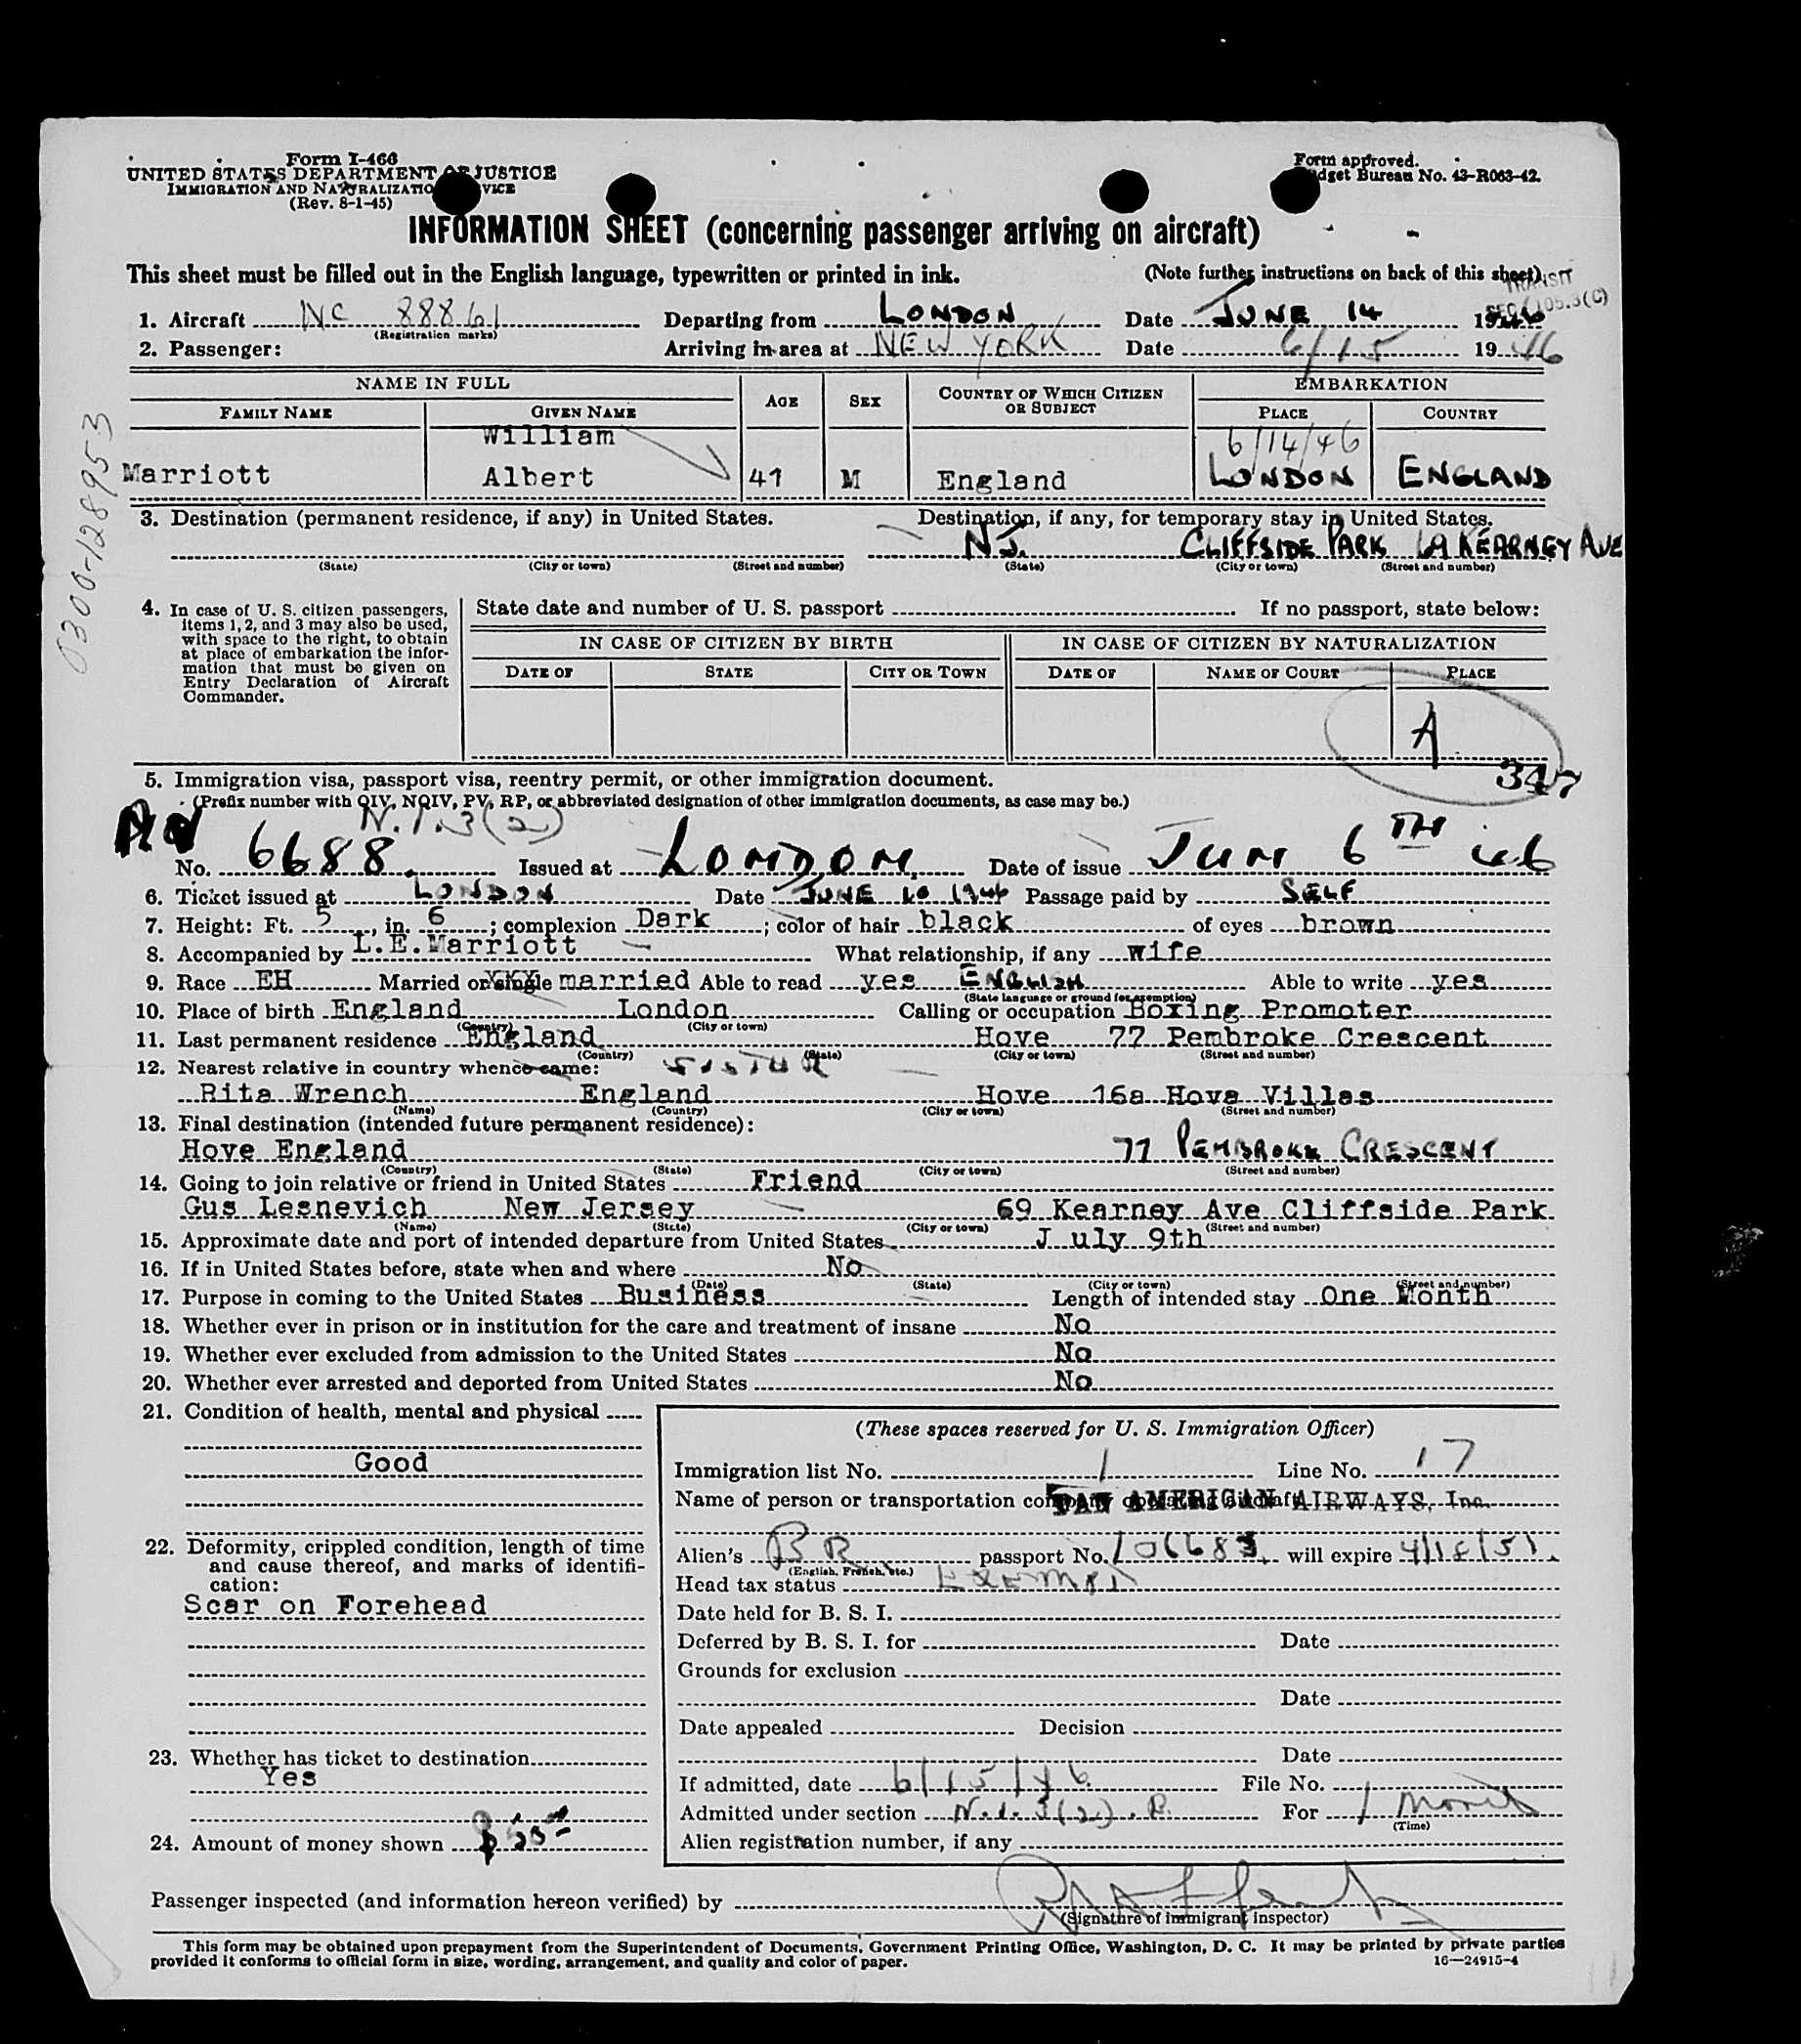 Form I-466
UNITED STATES DEPARTMENT OF JUSTICE
IMMIGRATION AND NATURALIZATION SERVICE
(Rev. 8-1-45)
Form approved.
Budget Bureau No. 43-R063-42.
INFORMATION SHEET (concerning passenger arriving on aircraft)
This sheet must be filled out in the English language, typewritten or printed in ink. (Note further instructions on back of this sheet)
TRANSIT
SEC. 105.3(C)
1. Aircraft NC 88861 Departing from LONDON Date JUNE 14 1946
(Registration marks)
2. Passenger: Arriving in area at NEW YORK Date 6/15 1946
NAME IN FULL AGE SEX COUNTRY OF WHICH CITIZEN OR SUBJECT EMBARKATION
FAMILY NAME GIVEN NAME PLACE COUNTRY
William 6/14/46
Marriott Albert 41 M England LONDON ENGLAND
0300-128953
3. Destination (permanent residence, if any) in United States. Destination, if any, for temporary stay in United States.
N.J. CLIFFSIDE PARK 69 KEARNEY AVE
(State) (City or town) (Street and number) (State) (City or town) (Street and number)
4. In case of U. S. citizen passengers, items 1, 2, and 3 may also be used, with space to the right, to obtain at place of embarkation the information that must be given on Entry Declaration of Aircraft Commander.
State date and number of U. S. passport If no passport, state below:
IN CASE OF CITIZEN BY BIRTH IN CASE OF CITIZEN BY NATURALIZATION
DATE OF STATE CITY OR TOWN DATE OF NAME OF COURT PLACE
A
347
5. Immigration visa, passport visa, reentry permit, or other immigration document.
(Prefix number with QIV, NQIV, PV, RP, or abbreviated designation of other immigration documents, as case may be.)
N.I. 3(2)
No. 6688. Issued at LONDON. Date of issue JUN 6TH 46
6. Ticket issued at LONDON Date JUNE 10 1946 Passage paid by SELF
7. Height: Ft. 5, in. 6; complexion Dark; color of hair black of eyes brown
8. Accompanied by L.E.Marriott What relationship, if any wife
9. Race EH Married or single XXX married Able to read yes ENGLISH Able to write yes
(State language or ground for exemption)
10. Place of birth England London Calling or occupation Boxing Promoter
(Country) (City or town)
11. Last permanent residence England Hove 77 Pembroke Crescent
(Country) (State) (City or town) (Street and number)
12. Nearest relative in country whence came: SISTER
Rita Wrench England Hove 16a Hova Villas
(Name) (Country) (City or town) (Street and number)
13. Final destination (intended future permanent residence):
Hove England 77 PEMBROKE CRESCENT
(Country) (State) (City or town) (Street and number)
14. Going to join relative or friend in United States Friend
Gus Lesnevich New Jersey 69 Kearney Ave Cliffside Park
(Name) (State) (City or town) (Street and number)
15. Approximate date and port of intended departure from United States J uly 9th
16. If in United States before, state when and where No
(Date) (State) (City or town) (Street and number)
17. Purpose in coming to the United States Business Length of intended stay One Month
18. Whether ever in prison or in institution for the care and treatment of insane No
19. Whether ever excluded from admission to the United States No
20. Whether ever arrested and deported from United States No
21. Condition of health, mental and physical
Good
22. Deformity, crippled condition, length of time and cause thereof, and marks of identification:
Scar on Forehead
23. Whether has ticket to destination
Yes
24. Amount of money shown
(These spaces reserved for U. S. Immigration Officer)
Immigration list No. 1 Line No. 17
Name of person or transportation company operating aircraft PAN AMERICAN AIRWAYS, Inc.
Alien's BR passport No. 106683 will expire 4/18/51.
(English, French, etc.)
Head tax status EXEMPT
Date held for B. S. I.
Deferred by B. S. I. for Date
Grounds for exclusion
Date
Date appealed Decision
Date
If admitted, date 6/15/46 File No.
Admitted under section N.I. 3(2). For 1 Month
(Time)
Alien registration number, if any
Passenger inspected (and information hereon verified) by
(Signature of immigrant inspector)
This form may be obtained upon prepayment from the Superintendent of Documents, Government Printing Office, Washington, D. C. It may be printed by private parties
provided it conforms to official form in size, wording, arrangement, and quality and color of paper. 16—24915-4